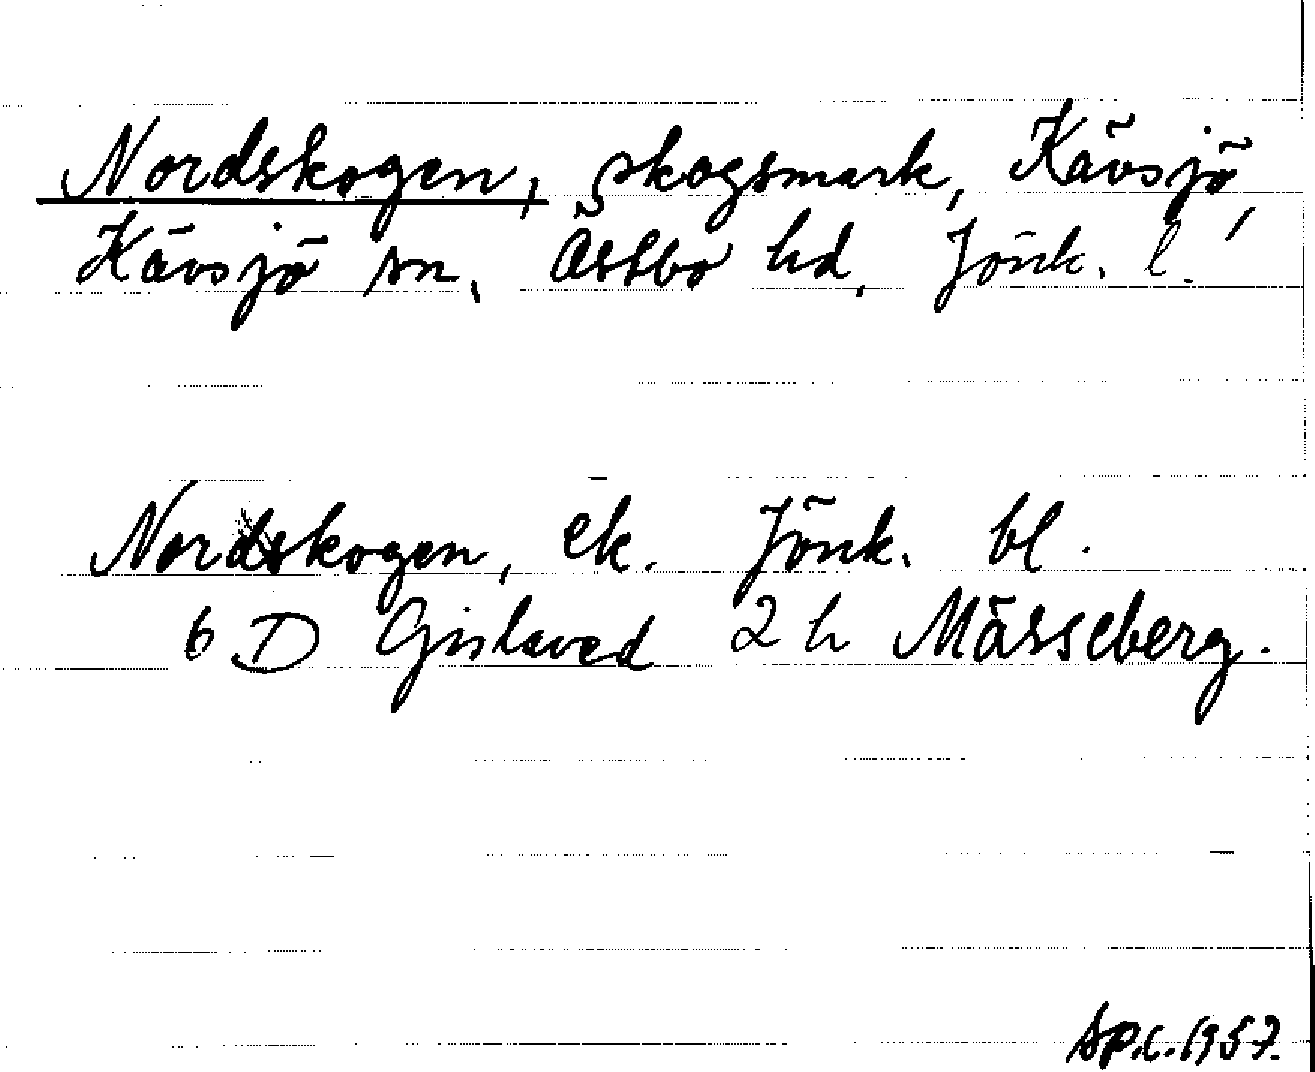 Nordskogen, skogsmark, Kävsjö,
Kävsjö sn, Östbo hd, Jönk. l.
Nordskogen, ek. Jönk. bl.
6 D Gislaved 2 h Mässeberg.
Sp.c. 1957.